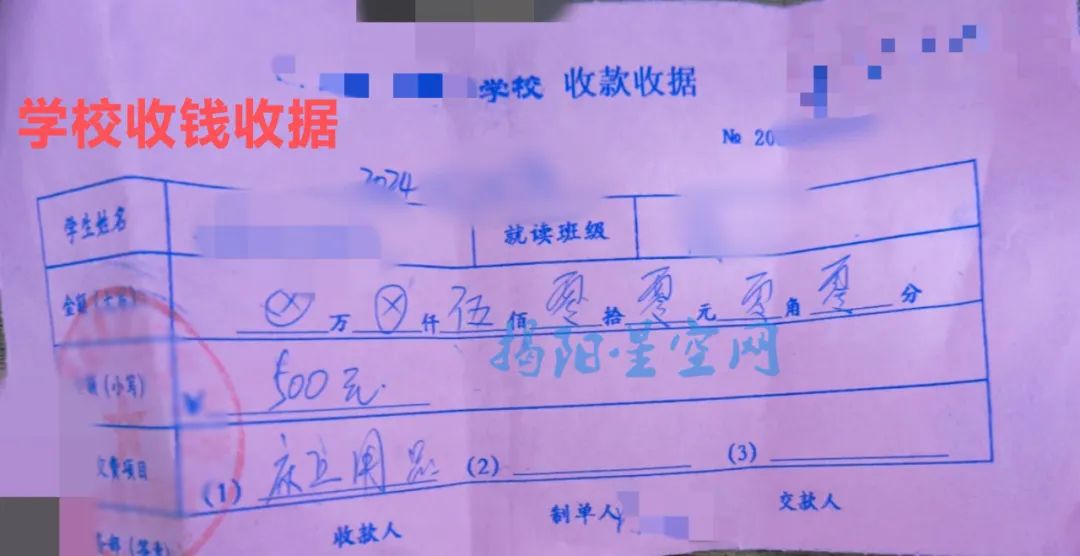 学校 收款收据
学校收钱收据
№ 20
2024
学生姓名 就读班级
金额(大写) ⊗万 ⊗仟 伍佰 零拾 零元 零角 零分
揭阳·星空网
(小写) ¥ 500元
交费项目 (1) 床上用品 (2) (3)
收款人 制单人 交款人